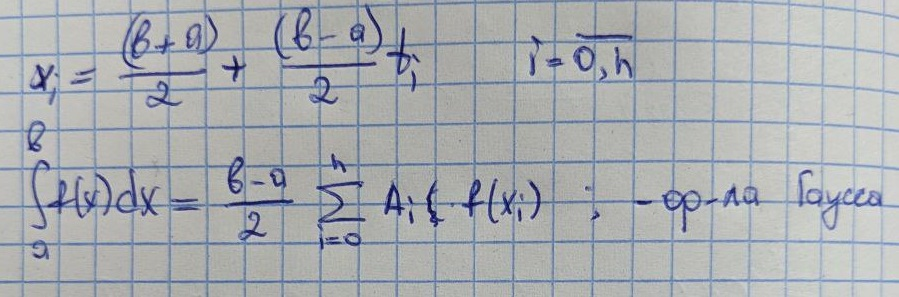 xᵢ = (в+а)/2 + (в-а)/2 tᵢ i = 0,n
∫ₐᵇ f(x)dx = в-а/2 ∑ᵢ₌₀ⁿ Aᵢ · f(xᵢ) ; - ф-ла Гаусса